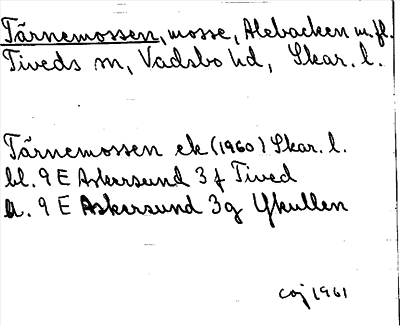 Tärnemossen, mosse, Alebacken m.fl.
Tiveds sn, Vadsbo hd, Skar. l.
Tärnemossen ek (1960) Skar. l.
bl. 9 E Askersund 3 f Tived
a. 9 E Askersund 3g Ykullen
coj 1961